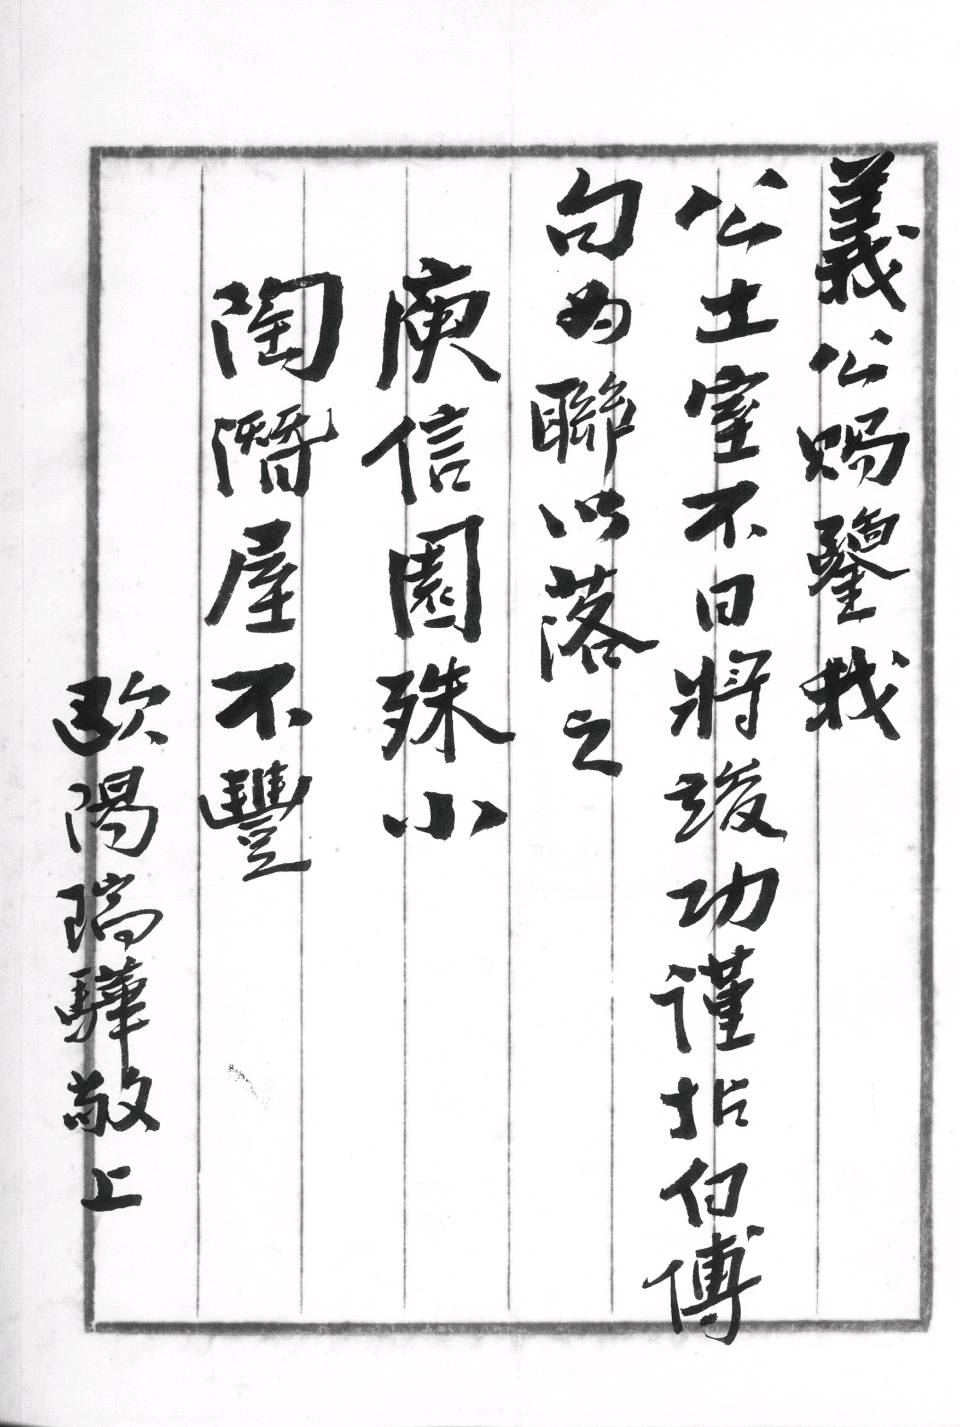 義公賜鑒我
公土室不日將竣功謹拈白傅
句為聯以落之
庾信園殊小
陶潛屋不豐
歐陽瑞驊敬上